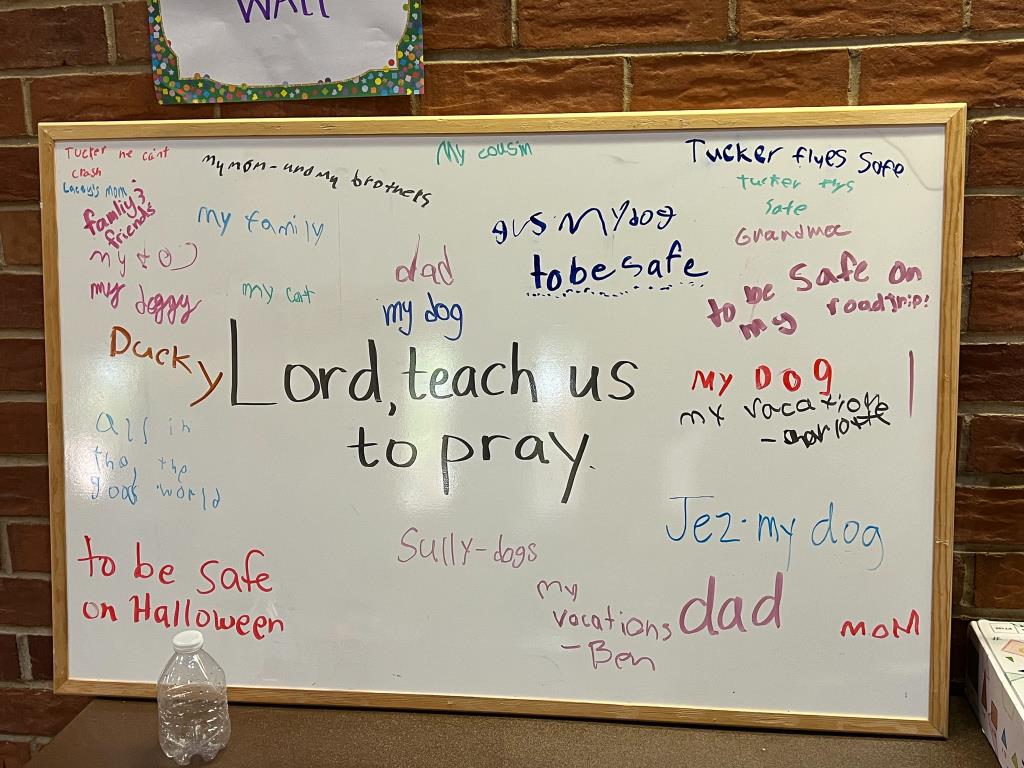 WALL
Tucker he cant
crash
Lacey's mom
family 3
friends
my mom-und my brothers
My cousin
Tucker flyes safe
tucker flys
safe
Grandmee
my family
gus My dog
to be safe
my
my doggy
my cat
dad
my dog
to be safe on
my roadtrip!
Ducky
Lord, teach us
to pray.
MY DOg
my vacatione
- charlotte
all in
the, the
goods world
Jez-my dog
Sully-dogs
to be safe
on Halloween
my
vocations
- Ben
dad
MOM